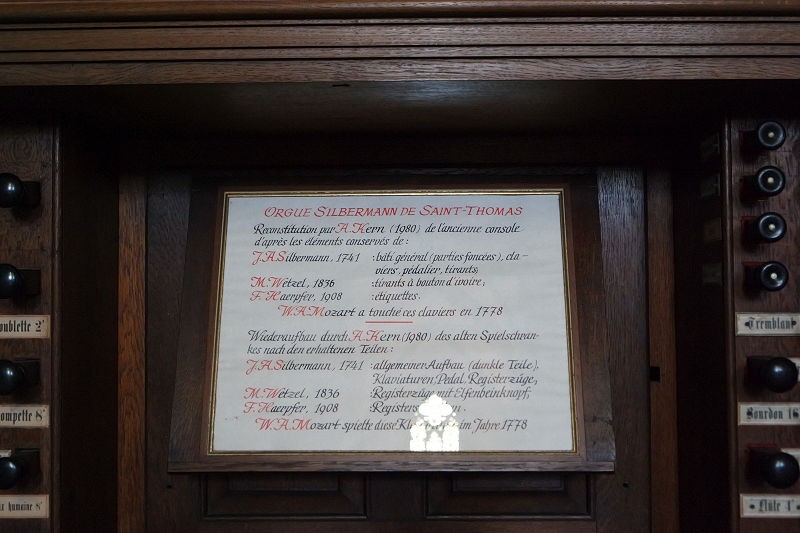 ORGUE SILBERMANN DE SAINT-THOMAS
Reconstitution par A. Kern (1980) de l'ancienne console
d'après les eléments conservés de :
J.A. Silbermann, 1741 : bâti général (parties foncées), cla-
viers, pédalier, tirants;
M. Wetzel, 1836 : tirants à bouton d'ivoire;
F. Haerpfer, 1908 : étiquettes.
W.A. Mozart a touché ces claviers en 1778
Wiederaufbau durch A. Kern (1980) des alten Spielschran-
kes nach den erhaltenen Teilen :
J.A. Silbermann, 1741 : allgemeiner Aufbau (dunkle Teile),
Klaviaturen, Pedal, Registerzüge;
M. Wetzel, 1836 : Registerzüge mit Elfenbeinknopf;
F. Haerpfer, 1908
W.A. Mozart spielte diese im Jahre 1778
oublette 2'
ompette 8'
humaine 8'
Tremblant
Bourdon 16
Flûte 4'